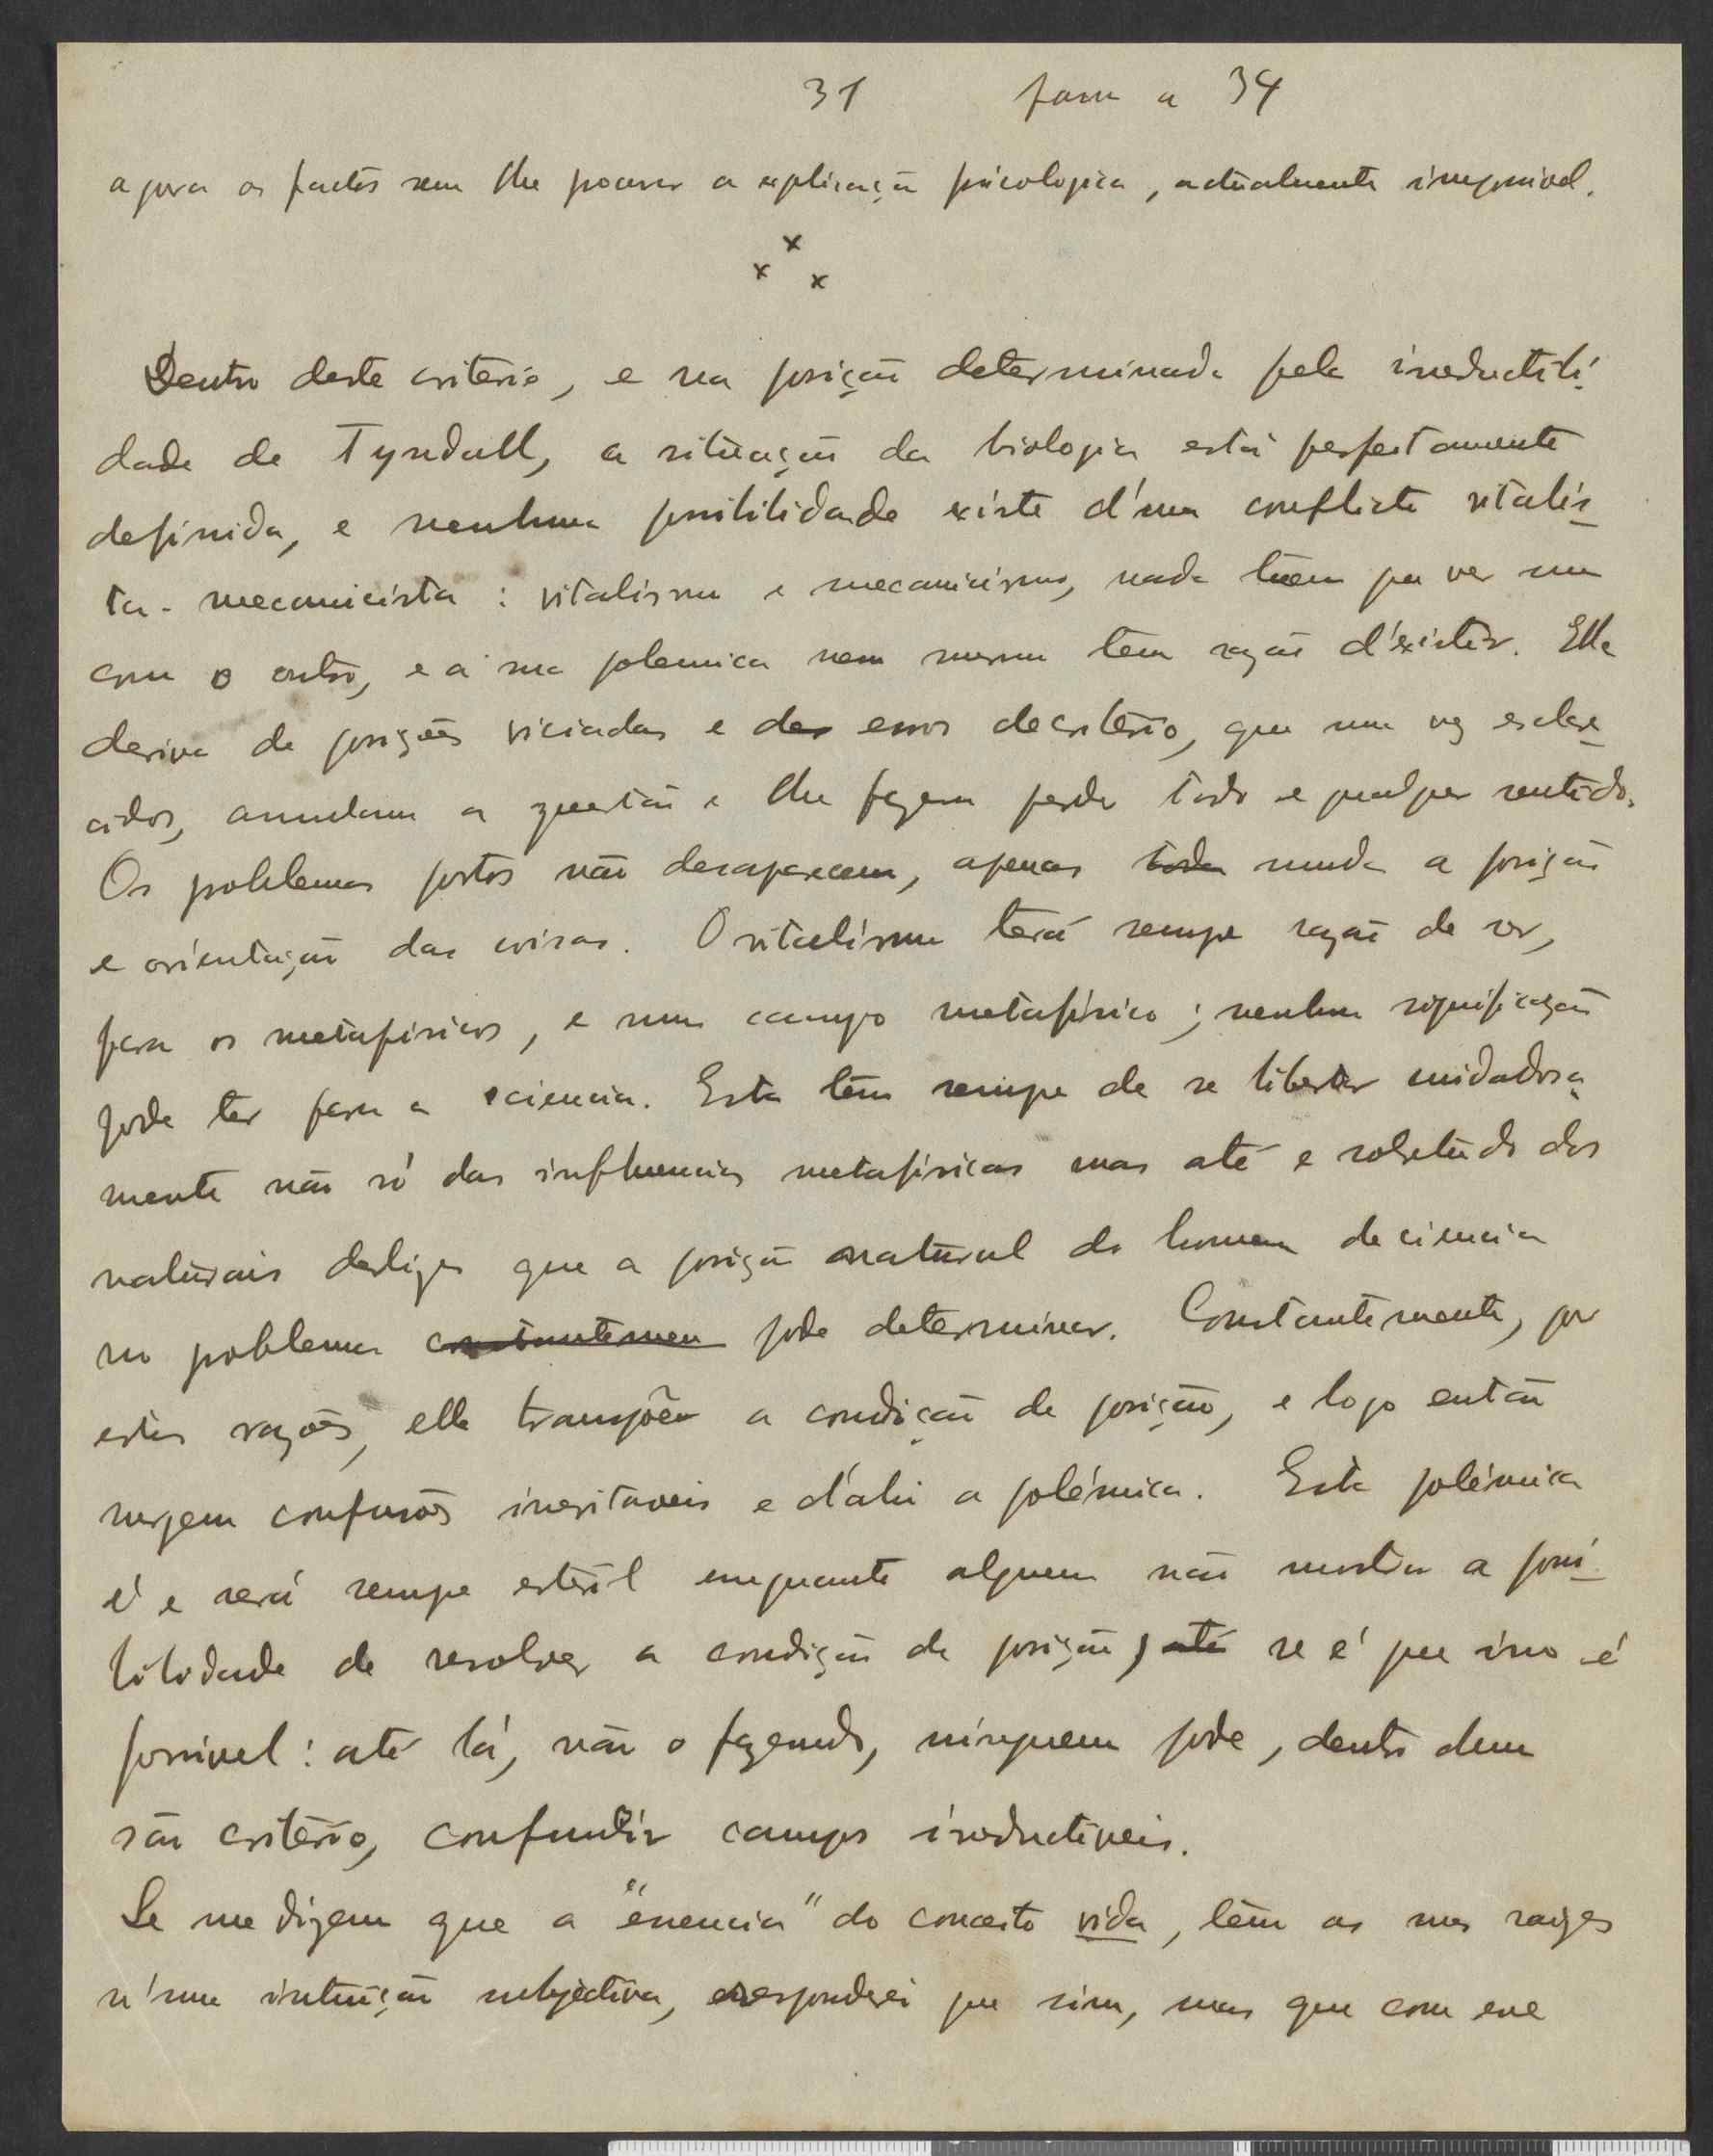 31 para a 34
agora os factos sem lhe procurar a explicação psicologica, actualmente impossivel.
x
x x
Dentro deste criterio, e na posição determinada pela irreductibi-
dade de Tyndall, a situação da biologia está perfeitamente
definida, e nenhuma possibilidade existe d'um conflicto vitalis-
ta-mecanicista: vitalismo e mecanicismo, nada tẽem que ver um
com o outro, e a sua polemica nem mesmo tem razão d'existir. Ella
deriva de posições viciadas e de erros de criterio, que uma vez esclare-
cidos, annulam a questão e lhe fazem perder todo e qualquer sentido.
Os problemas postos não desaparecem, apenas toda muda a posição
e orientação das coisas. O vitalismo terá sempre razão de ser,
para os metafisicos, e num campo metafisico; nenhuma significação
pode ter para a sciencia. Esta tem sempre de se libertar cuidadosa-
mente não só das influencias metafisicas mas até e sobretudo dos
naturais deslizes que a posição natural do homem de ciencia
no problema constantemen pode determinar. Constantemente, por
estas razões, elle transpõe a condição de posição, e logo então
surgem confusões inevitaveis e d'ahi a polémica. Esta polémica
é e será sempre esteril emquanto alguem não mostrar a possi-
bilidade de resolver a condição de posição, até se é que isso é
possivel: até lá, não o fazendo, ninguem pode, dentro dum
são criterio, confundir campos irreductiveis.
Se me dizem que a "essencia" do conceito vida, tem as suas raizes
n'uma intuição subjectiva, responderei que sim, mas que com esse